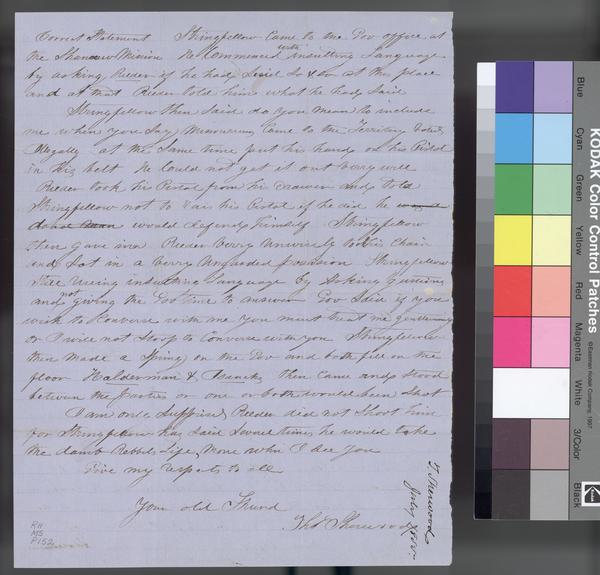 Correct Statement Stringfellow Came to the Gov office at
the Shanaw Mission He Commenced with insulting Language
by asking Reeder if he had Said So & So at this place
and at that Reeder told him what he had Said
Stringfellow then Said do you mean to include
me when you Say Missourians Came to the Territory voted
illegally at the Same time put his hand on his Pistol
in his belt He Could not get it out very well
Reeder took his Pistol from his drawer and told
Stringfellow not to draw his Pistol if he did he
would defend himself Stringfellow
then gave in Reeder very unwisely took his Chair
and Sat in a very unguarded position Stringfellow
Still useing insulting Language by Asking questions
and not giving the Gov time to answer Gov Said if you
wish to Converse with me you must treat me gentlemanly
or I will not Stoop to Converse with you Stringfellow
then made a Spring on the Gov and both fell on the
floor Halderman & then Came and Stood
between the parties or one or both would been Shot
I am only Surprised Reeder did not Shoot him
for Stringfellow has Said Several times he would take
the damb Rebbels Life, More when I See you
Give my respects to all
Your old Friend
Thos Sherwood
T. Sherwood
July 1855
RH
MS
P152
KODAK Color Control Patches
©Eastman Kodak Company, 1997
Blue
Cyan
Green
Yellow
Red
Magenta
White
3/Color
Black